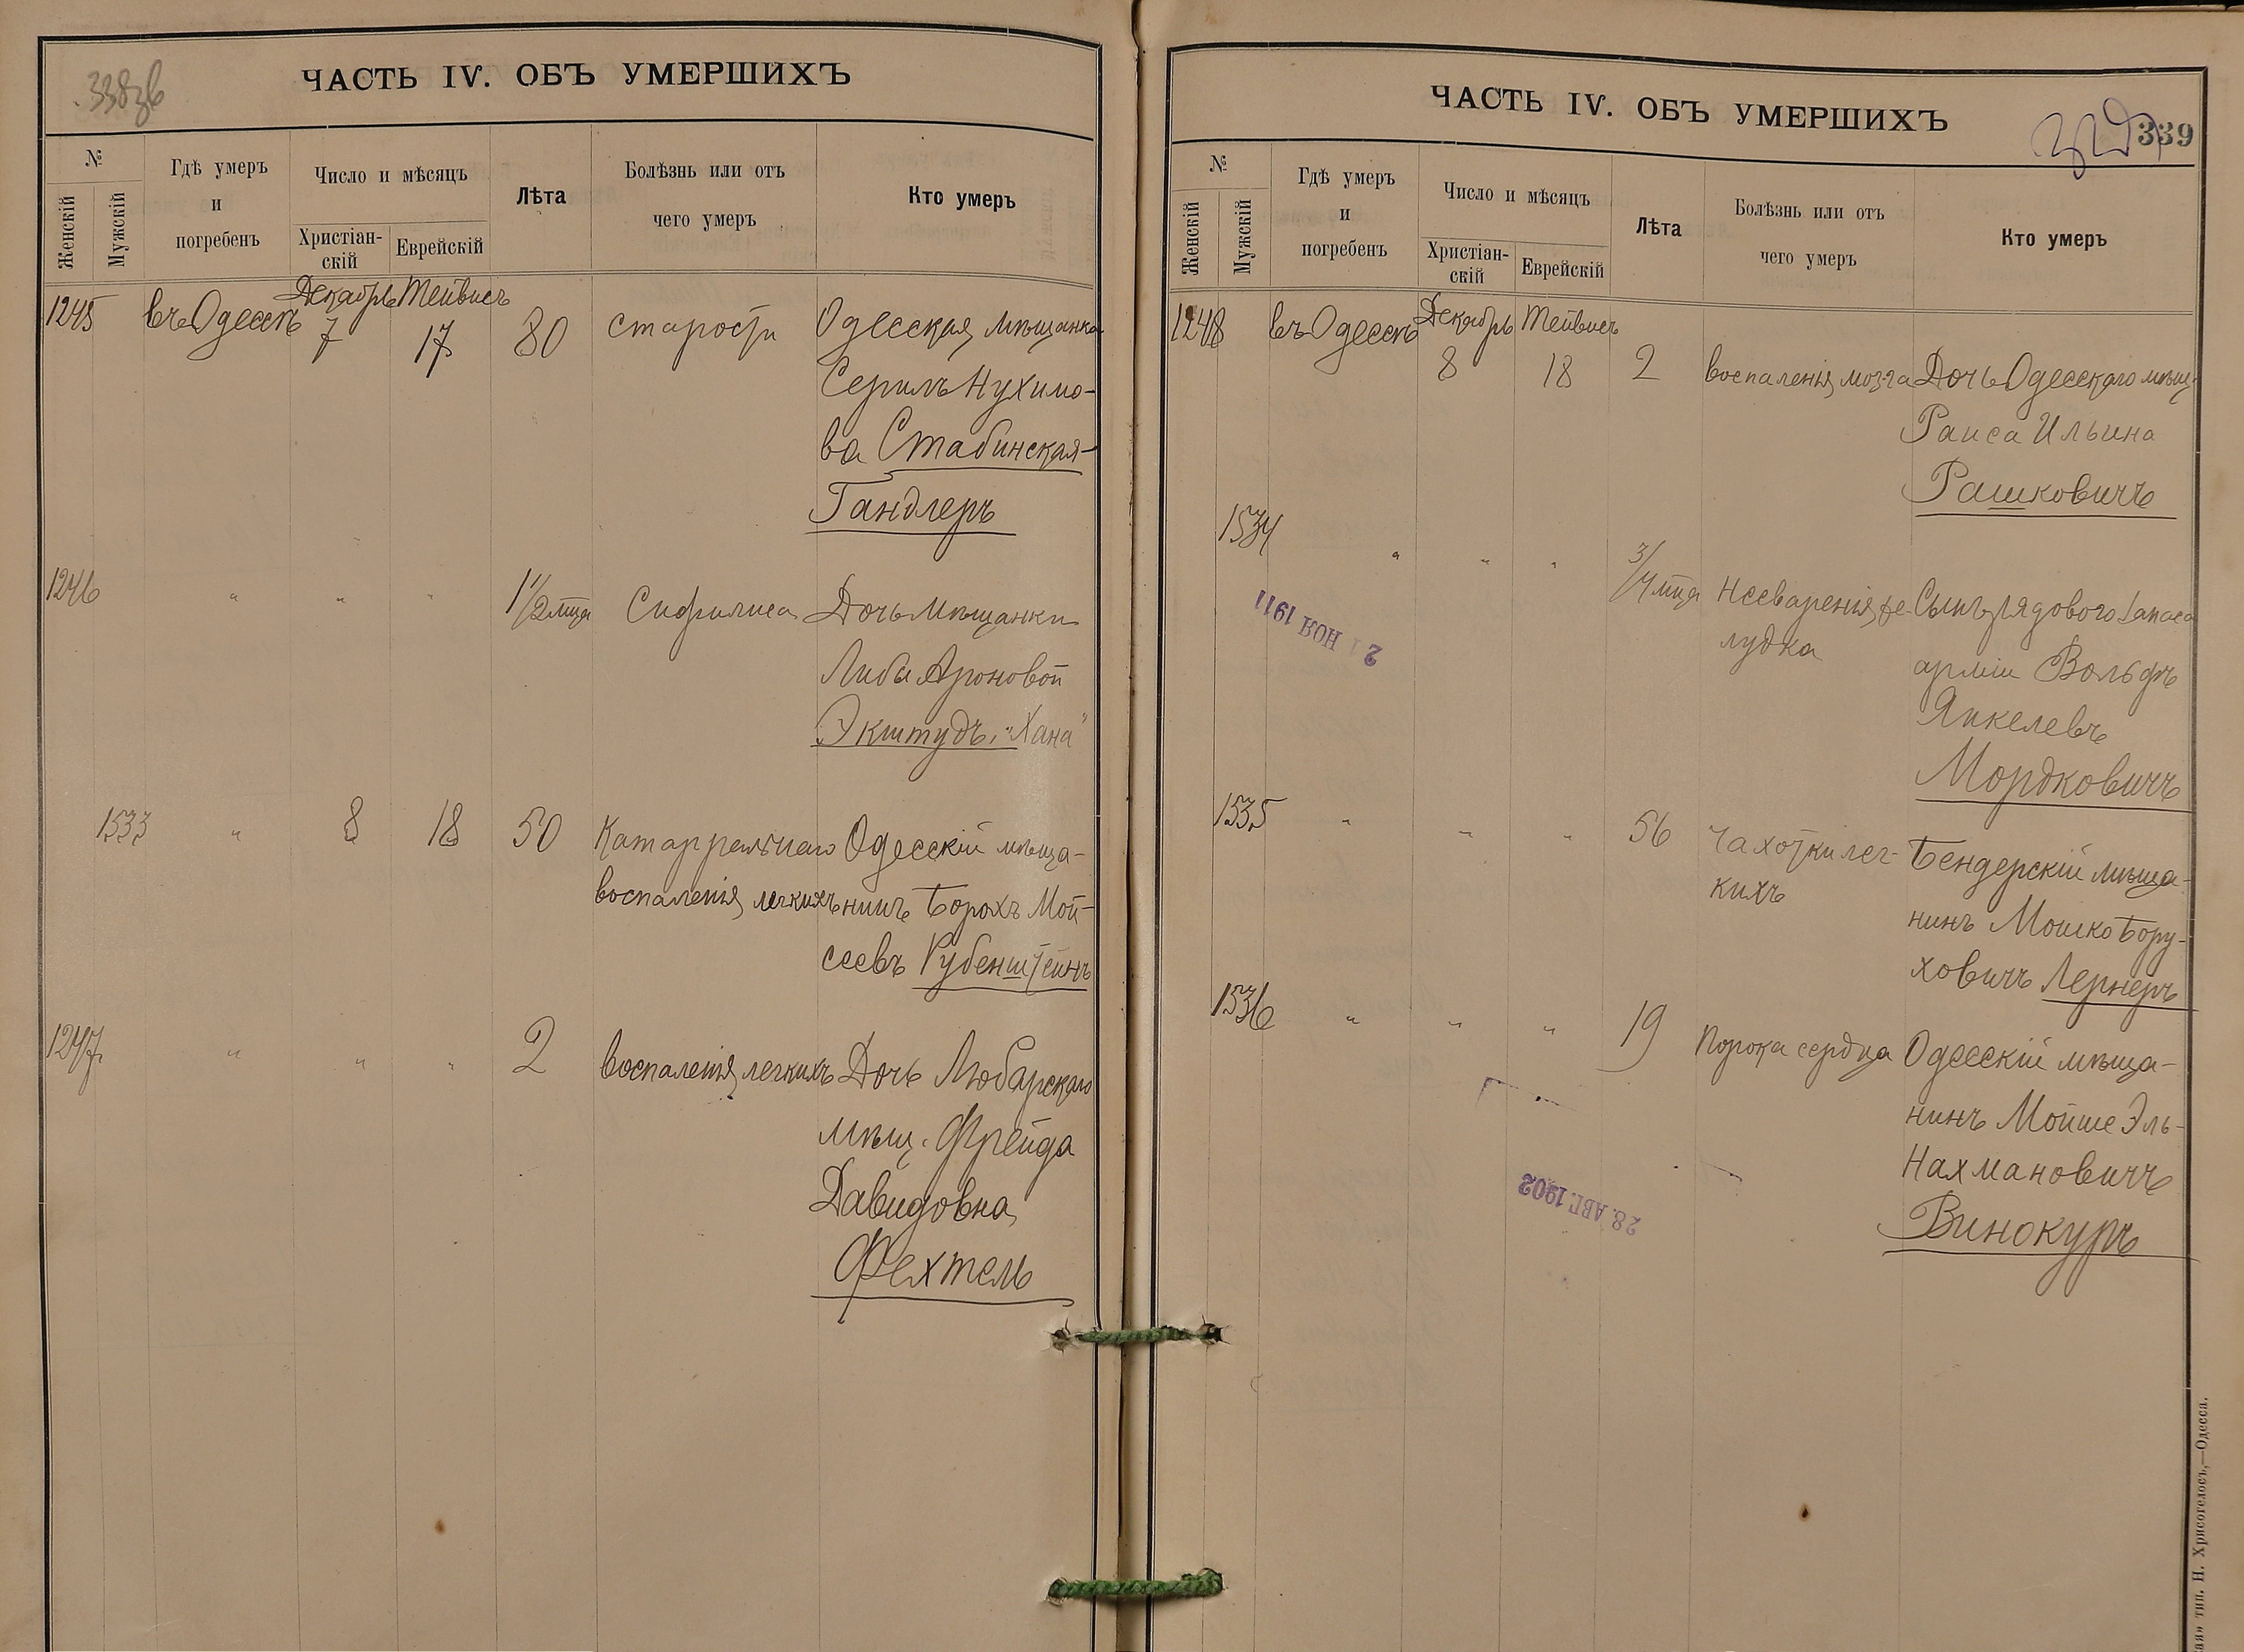 338 об
ЧАСТЬ IV. ОБЪ УМЕРШИХЪ
№
Женскій
Мужскій
Гдѣ умеръ
и
погребенъ
Число и мѣсяцъ
Христіан-
скій
Еврейскій
Лѣта
Болѣзнь или отъ
чего умеръ
Кто умеръ
1245 въ Одессѣ Декабрь 7 Тейвисъ 17 80 старости Одесская мѣщанка
Серилъ Нухимо-
ва Стабинская-
Гандлеръ
1246 " " " 1 1/2 мца Сифилиса Дочь мѣщанки
Либы Ароновой
Экштудъ, "Хана"
1533 " 8 18 50 Катарральнаго Одесскій мѣща-
воспаленія легкихъ нинъ Борохъ Мой-
сеевъ Рубенштейнъ
1247 " " " 2 воспаленія легкихъ Дочь Любарскаго
мѣщ. Фрейда
Давидовна
Фехтель
ЧАСТЬ IV. ОБЪ УМЕРШИХЪ
339
№
Женскій
Мужскій
Гдѣ умеръ
и
погребенъ
Число и мѣсяцъ
Христіан-
скій
Еврейскій
Лѣта
Болѣзнь или отъ
чего умеръ
Кто умеръ
1248 въ Одессѣ Декабрь 8 Тейвисъ 18 2 воспаленія мозга Дочь Одесскаго мѣщ.
Раиса Ильина
Рашковичъ
1534 " " " 3/4 мца Несваренія же- Сынъ рядового запаса
лудка арміи Вольфъ
Янкелевъ
Мордковичъ
2 НОЯ 1911
1535 " " " 56 Чахотки лег- Бендерскій мѣща-
кихъ нинъ Мошко Бору-
ховичъ Лернеръ
1536 " " " 19 Порока сердца Одесскій мѣща-
нинъ Мойше Эль-
Нахмановичъ
Винокуръ
28. АВГ. 1902
тип. Н. Хрисогелосъ,—Одесса.